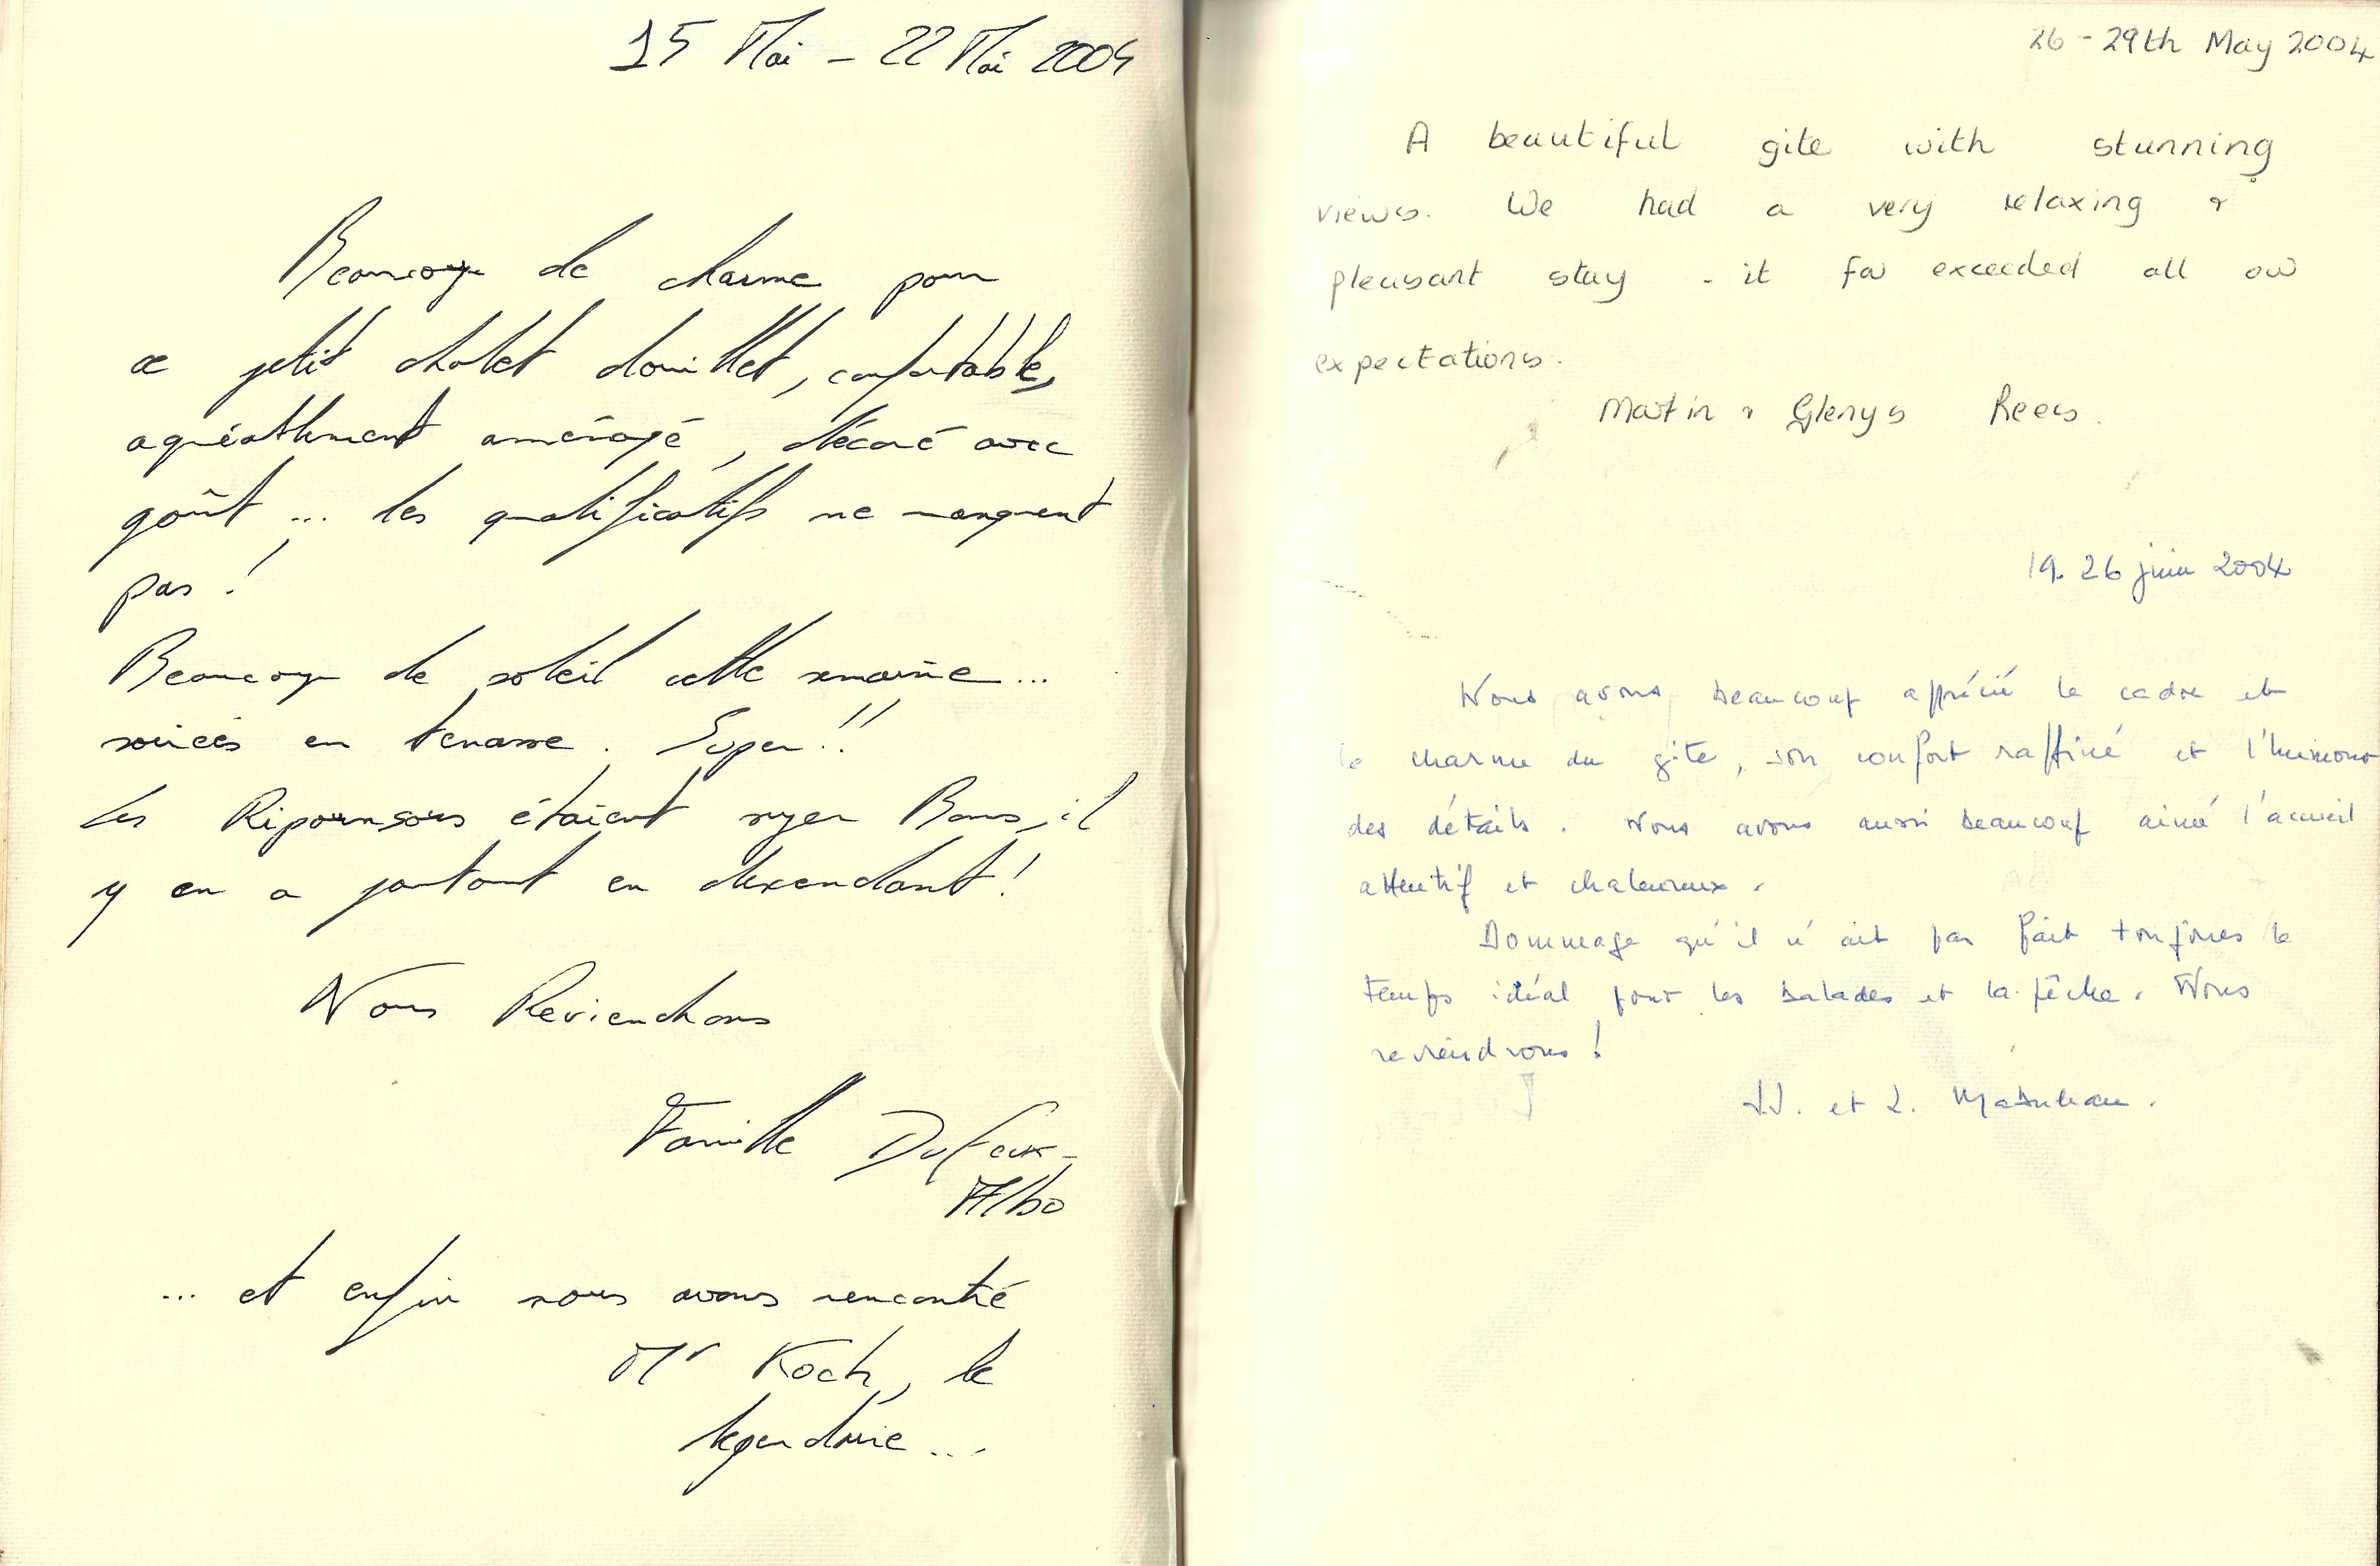 15 Mai - 22 Mai 2004
Beaucoup de charme pour
ce petit chalet douillet, confortable,
agréablement aménagé, décoré avec
goût ... les qualificatifs ne manquent
pas !
Beaucoup de soleil cette semaine ...
soirées en terrasse. Super !!
Les Ripounsous étaient super Bons, il
y en a partout en descendant !
Nous Reviendrons
Famille Dufaux-
Albo
... et enfin nous avons rencontré
Mr Koch, le
légendaire ...
26 - 29th May 2004
A beautiful gite with stunning
views. We had a very relaxing &
pleasant stay - it far exceeded all our
expectations.
Martin & Glenys Rees.
19. 26 juin 2004
Nous avons beaucoup apprécié le cadre et
le charme du gîte, son confort raffiné et l'humour
des détails. Nous avons aussi beaucoup aimé l'accueil
attentif et chaleureux.
Dommage qu'il n'ait pas fait toujours le
temps idéal pour les balades et la pêche. Nous
reviendrons !
J.J. et L.